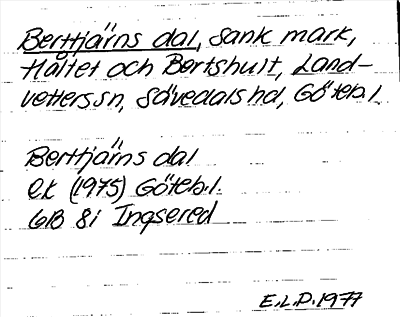 Berttjärns dal, sank mark,
Håltet och Bertshult, Land-
vetterssn, Sävedals hd, Göteb.l.
Berttjärns dal
ek (1975) Göteb.l.
6B 8i Ingsered
E.L.P. 1977